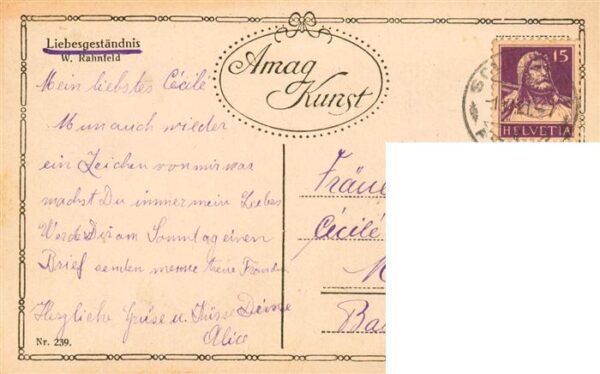 Liebesgeständnis
W. Rahnfeld
Amag
Kunst
15
HELVETIA
Mein liebstes Cécilé
Nun auch wieder
ein Zeichen von mir was
machst Du immer mein Liebes
Werde Dir am Sonntag einen
Brief senden meine treue
Herzliche Grüse u. Küsse Deine
Alice
Cécilé
Nr. 239.